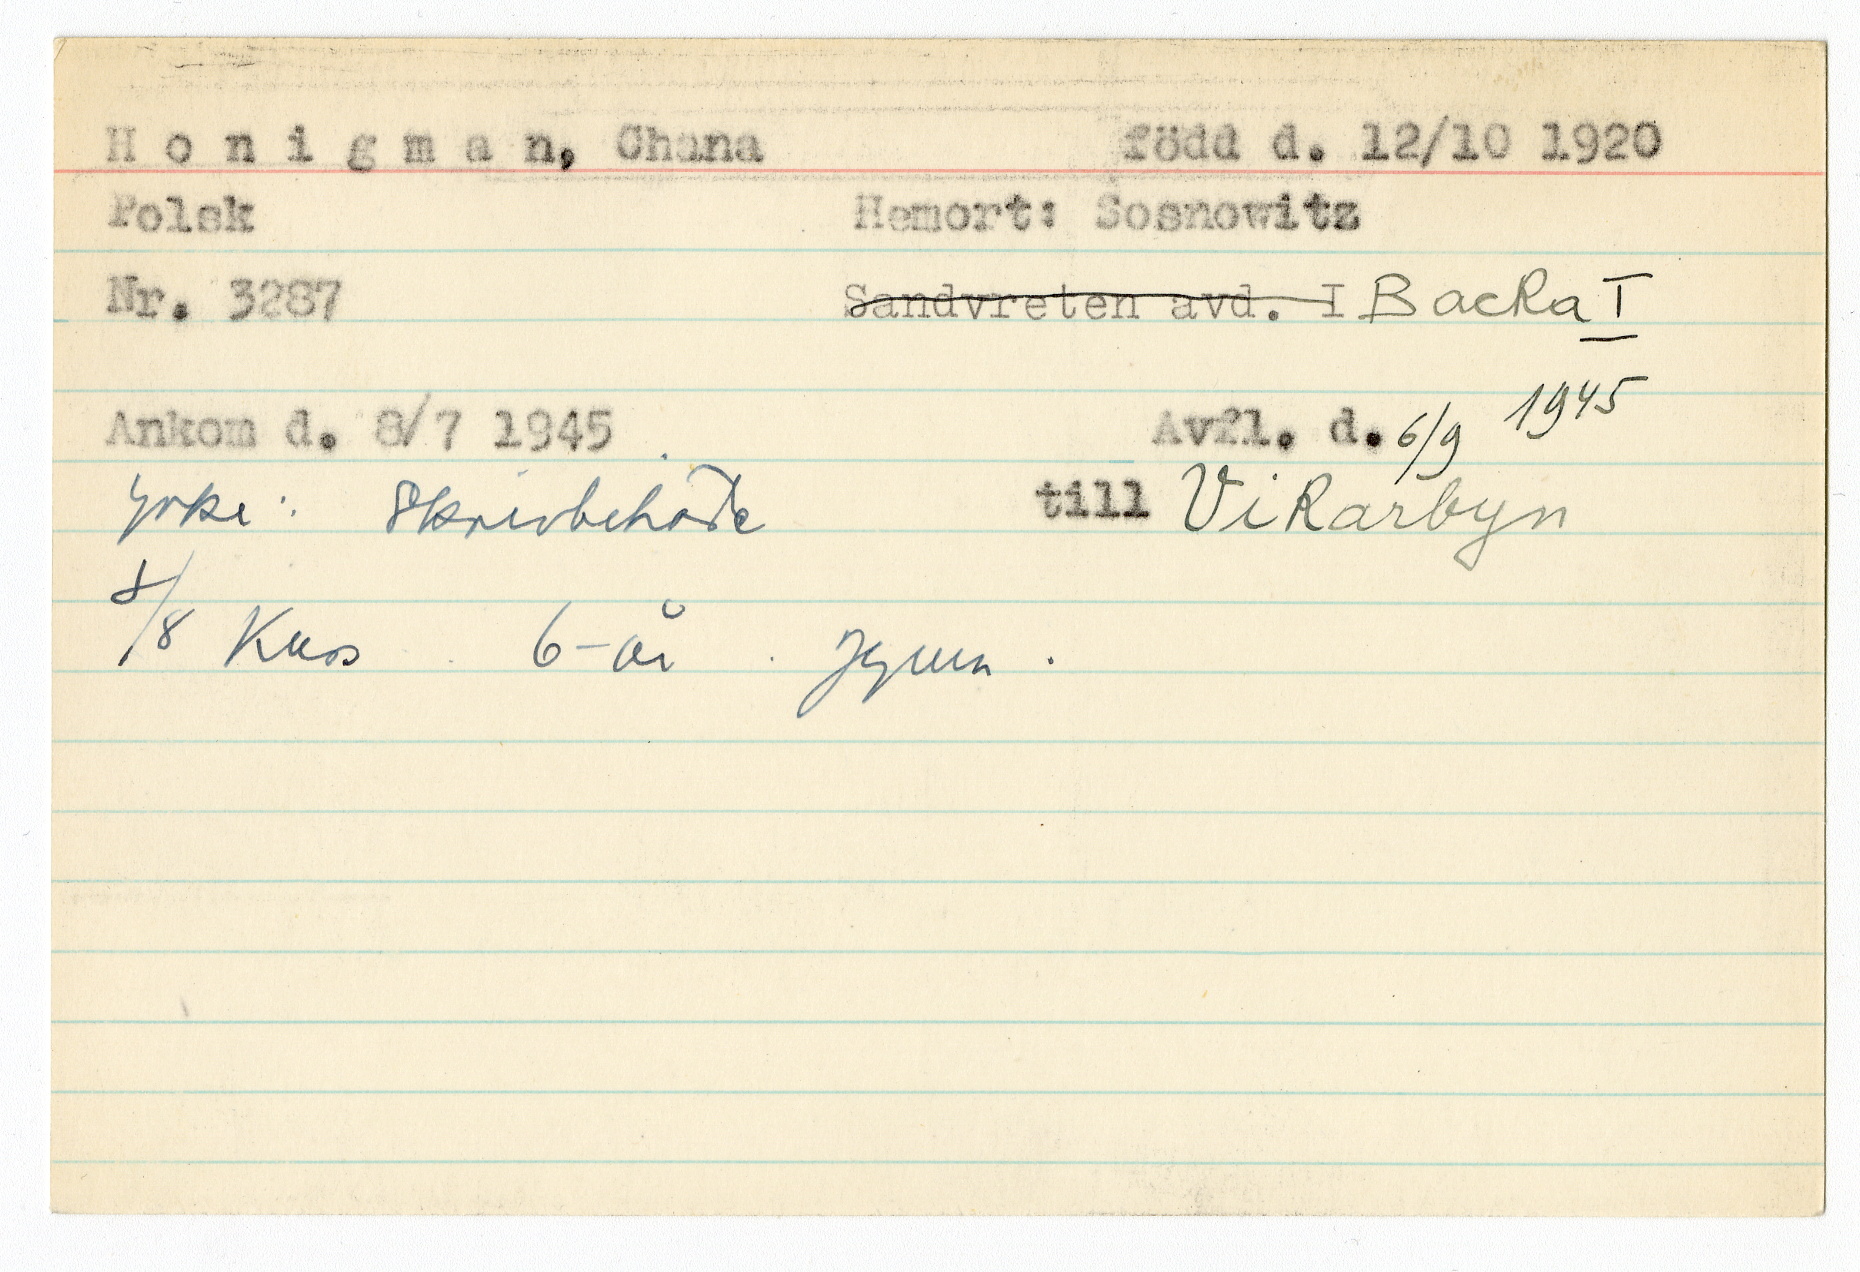 Honigman, Chana född d. 12/10 1920
Polsk Hemort: Sosnowitz
Nr. 3287 Sandvreten avd. I Backa I
Ankom d. 8/7 1945 Avfl. d. 6/9 1945
Yrke: Skrivbiträde till Vikarbyn
/8 6-år